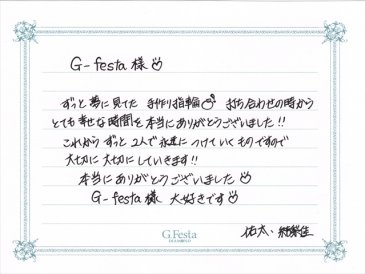 G-festa 様
ずっと夢に見てた 手作り指輪 打ち合わせの時から
とても幸せな時間を本当にありがとうございました!!
これからずっと2人で永遠につけていくものですので
大切に大切にしていきます!!
本当にありがとうございました
G-festa 様 大好きです
佑太・
G.Festa